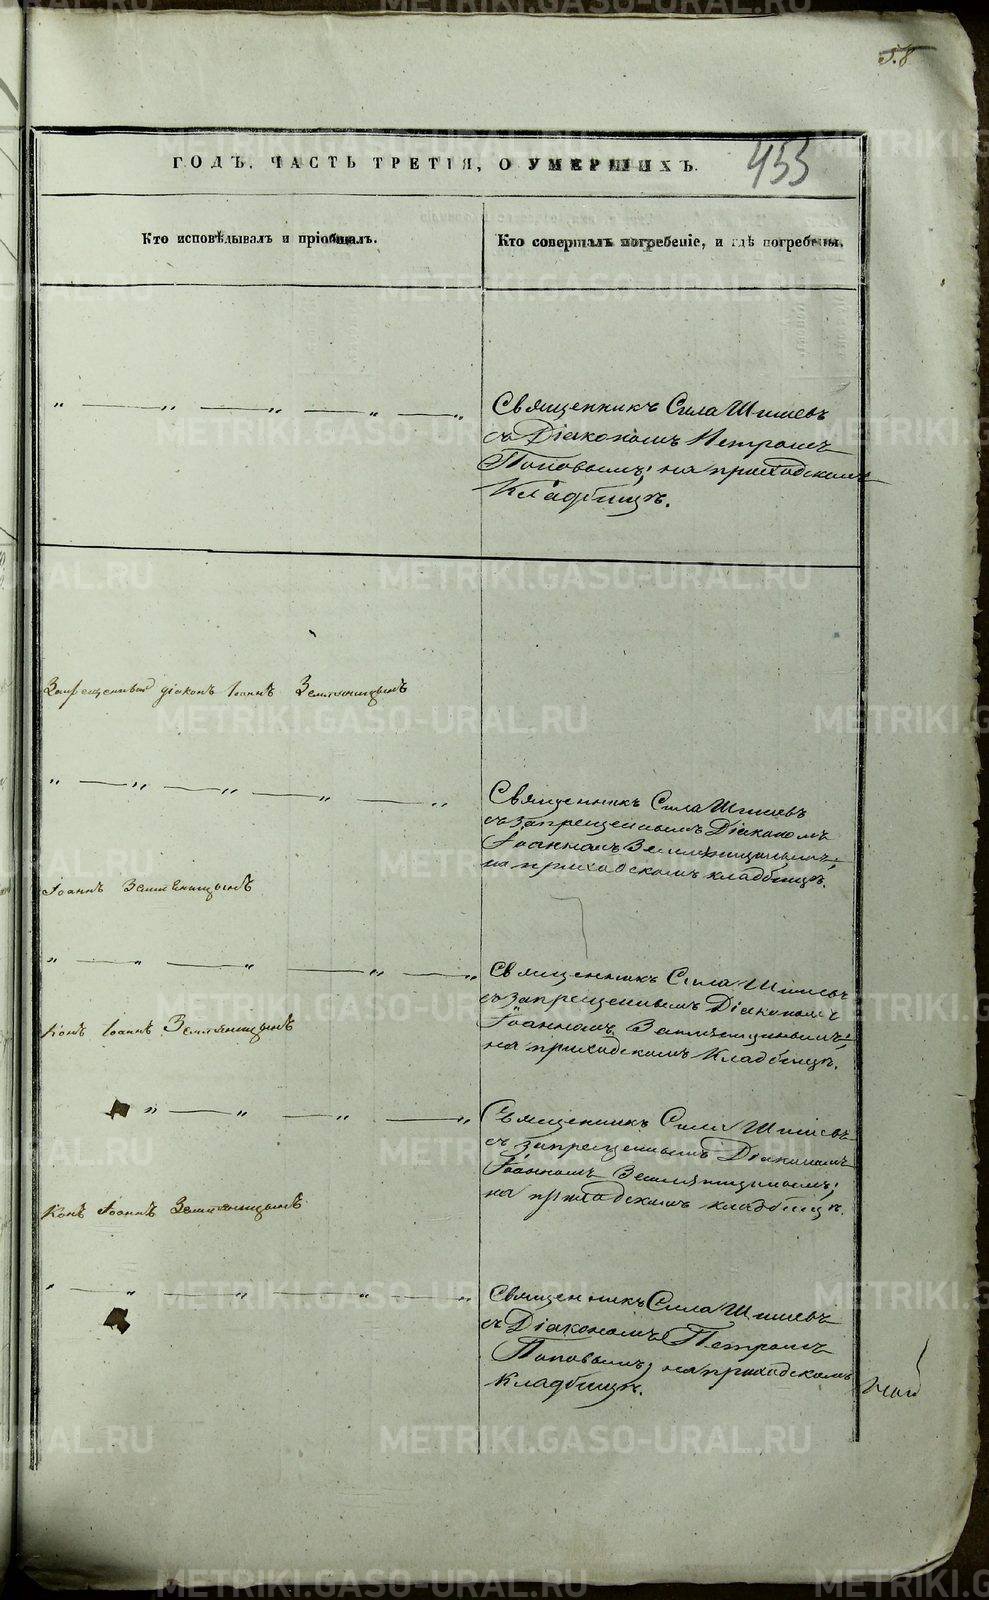 58
ГОДЪ, ЧАСТЬ ТРЕТІЯ, О УМЕРШИХЪ.
453
Кто исповѣдывалъ и пріобщалъ.
Кто совершалъ погребеніе, и гдѣ погребены.
„ — „ — „ — „ — „
Священникъ Сила Шишевъ
съ Діакономъ Петромъ
Поповымъ; на приходскомъ
Кладбищѣ.
діаконъ Іоаннъ Земляницынъ
„ — „ — „ — „ — „
Священникъ Сила Шишевъ
съ запрещеннымъ Діакономъ
Іоанномъ Земляницынымъ;
на приходскомъ кладбищѣ.
Іоаннъ Земляницынъ
„ — „ — „ — „ — „
Священникъ Сила Шишевъ
съ запрещеннымъ Діакономъ
Іоанномъ
на приходскомъ Кладбищѣ.
Іоаннъ Земляницынъ
„ — „ — „ — „
Священникъ Сила Шишевъ
съ запрещеннымъ Діакономъ
Іоанномъ Земляницынымъ;
на приходскомъ кладбищѣ.
Іоаннъ Земляницынъ
„ — „ — „ — „ — „
Священникъ Сила Шишевъ
съ Діакономъ Петромъ
Поповымъ; на приходскомъ
Кладбищѣ.
METRIKI.GASO-URAL.RU